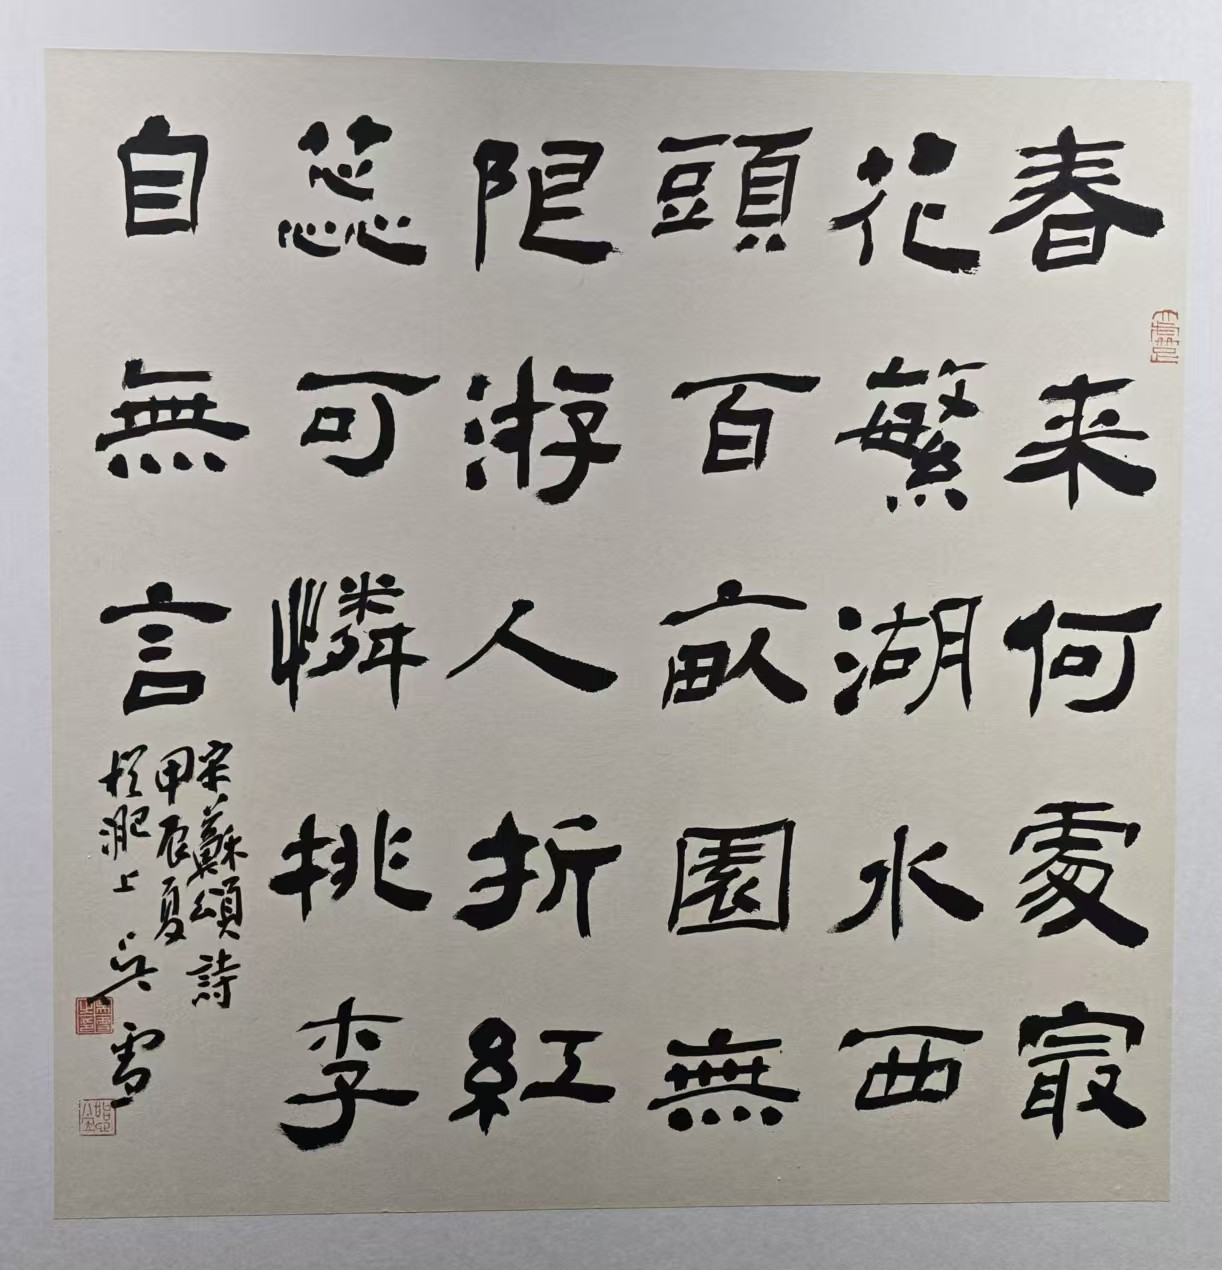 春来何處冣
花繁湖水西
頭百畝園無
限游人折紅
蕊可憐挑李
自無言
宋蘇頌詩
甲辰夏
於淝上吴雪